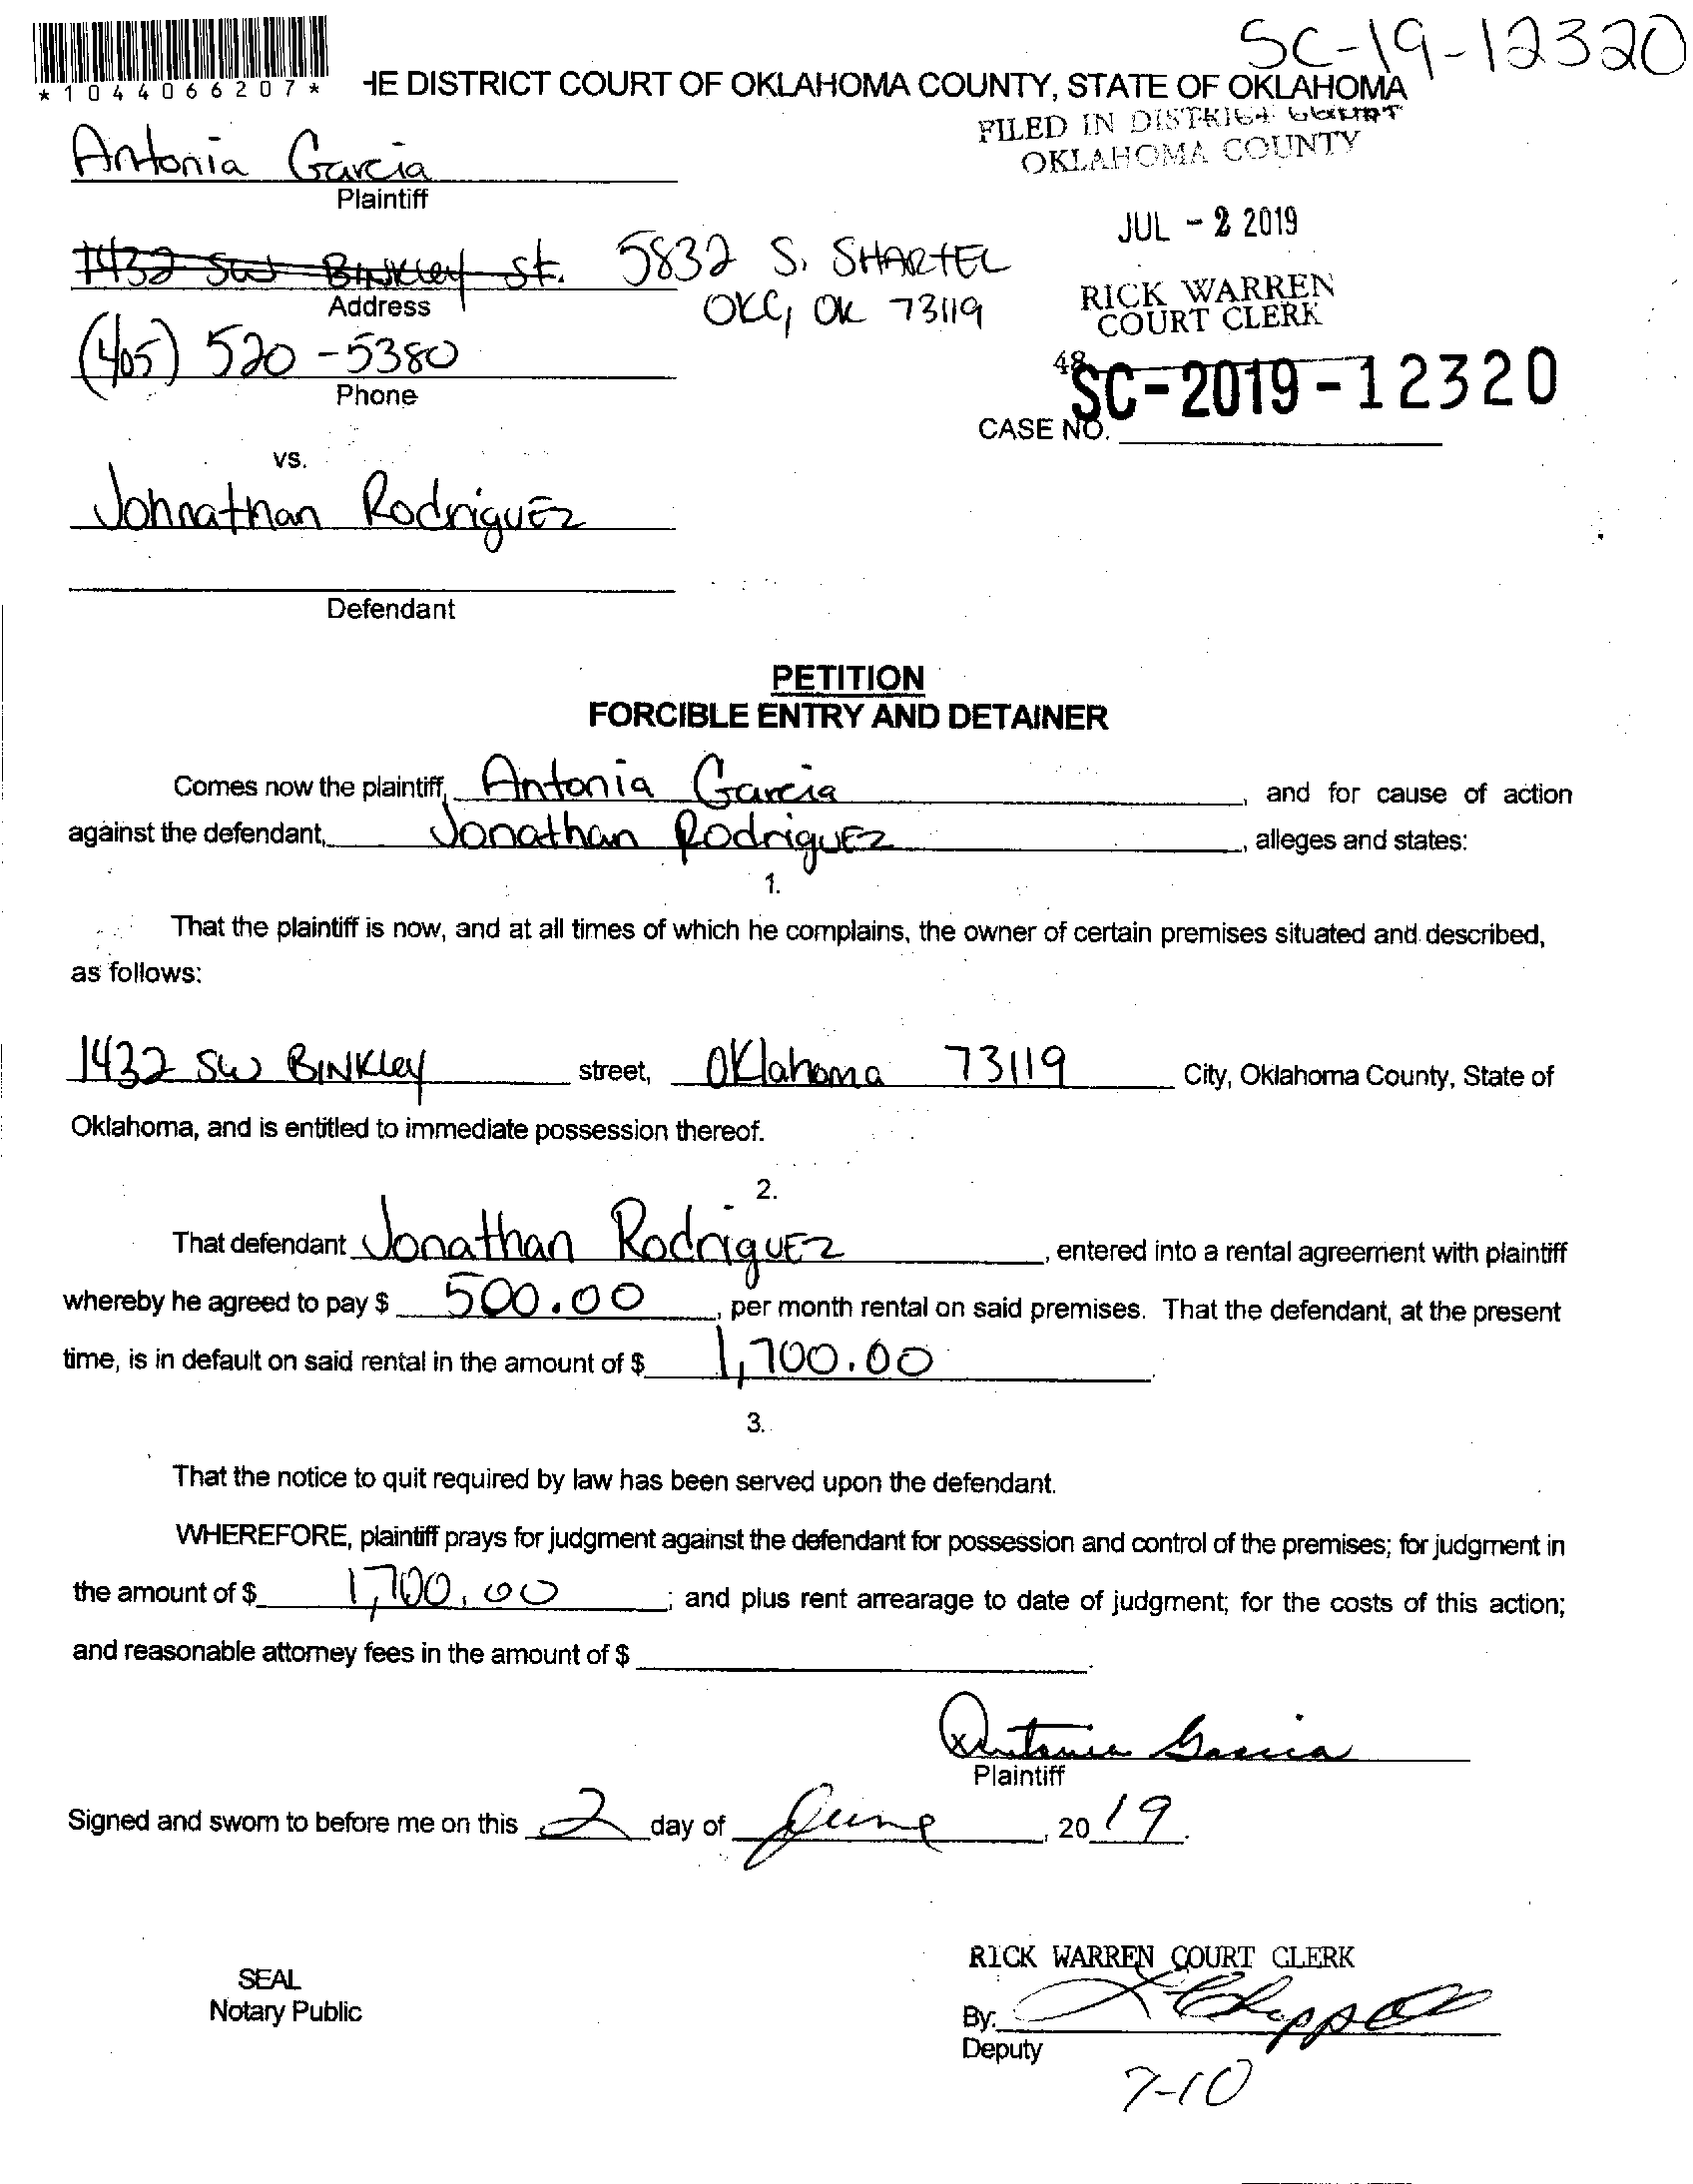 SC-19-12320
*1044066207*
HE DISTRICT COURT OF OKLAHOMA COUNTY, STATE OF OKLAHOMA
FILED IN DISTRICT COURT
OKLAHOMA COUNTY
Antonia Garcia
Plaintiff
JUL - 2 2019
1432 SW Binkley St. 5832 S. SHARTEL
Address
OKC, OK 73119
RICK WARREN
COURT CLERK
(405) 520-5380
Phone
48
SC-2019-12320
CASE NO.
vs.
Johnathan Rodriguez
Defendant
PETITION
FORCIBLE ENTRY AND DETAINER
Comes now the plaintiff, Antonia Garcia, and for cause of action
against the defendant, Jonathan Rodriguez, alleges and states:
1.
That the plaintiff is now, and at all times of which he complains, the owner of certain premises situated and described,
as follows:
1432 SW BINKley street, Oklahoma 73119 City, Oklahoma County, State of
Oklahoma, and is entitled to immediate possession thereof.
2.
That defendant Jonathan Rodriguez, entered into a rental agreement with plaintiff
whereby he agreed to pay $ 500.00, per month rental on said premises. That the defendant, at the present
time, is in default on said rental in the amount of $ 1,700.00.
3.
That the notice to quit required by law has been served upon the defendant.
WHEREFORE, plaintiff prays for judgment against the defendant for possession and control of the premises; for judgment in
the amount of $ 1,700.00; and plus rent arrearage to date of judgment; for the costs of this action;
and reasonable attorney fees in the amount of $ .
x Antonia Garcia
Plaintiff
Signed and sworn to before me on this 2 day of June, 2019.
RICK WARREN COURT CLERK
SEAL
Notary Public
By:
Deputy
7-10